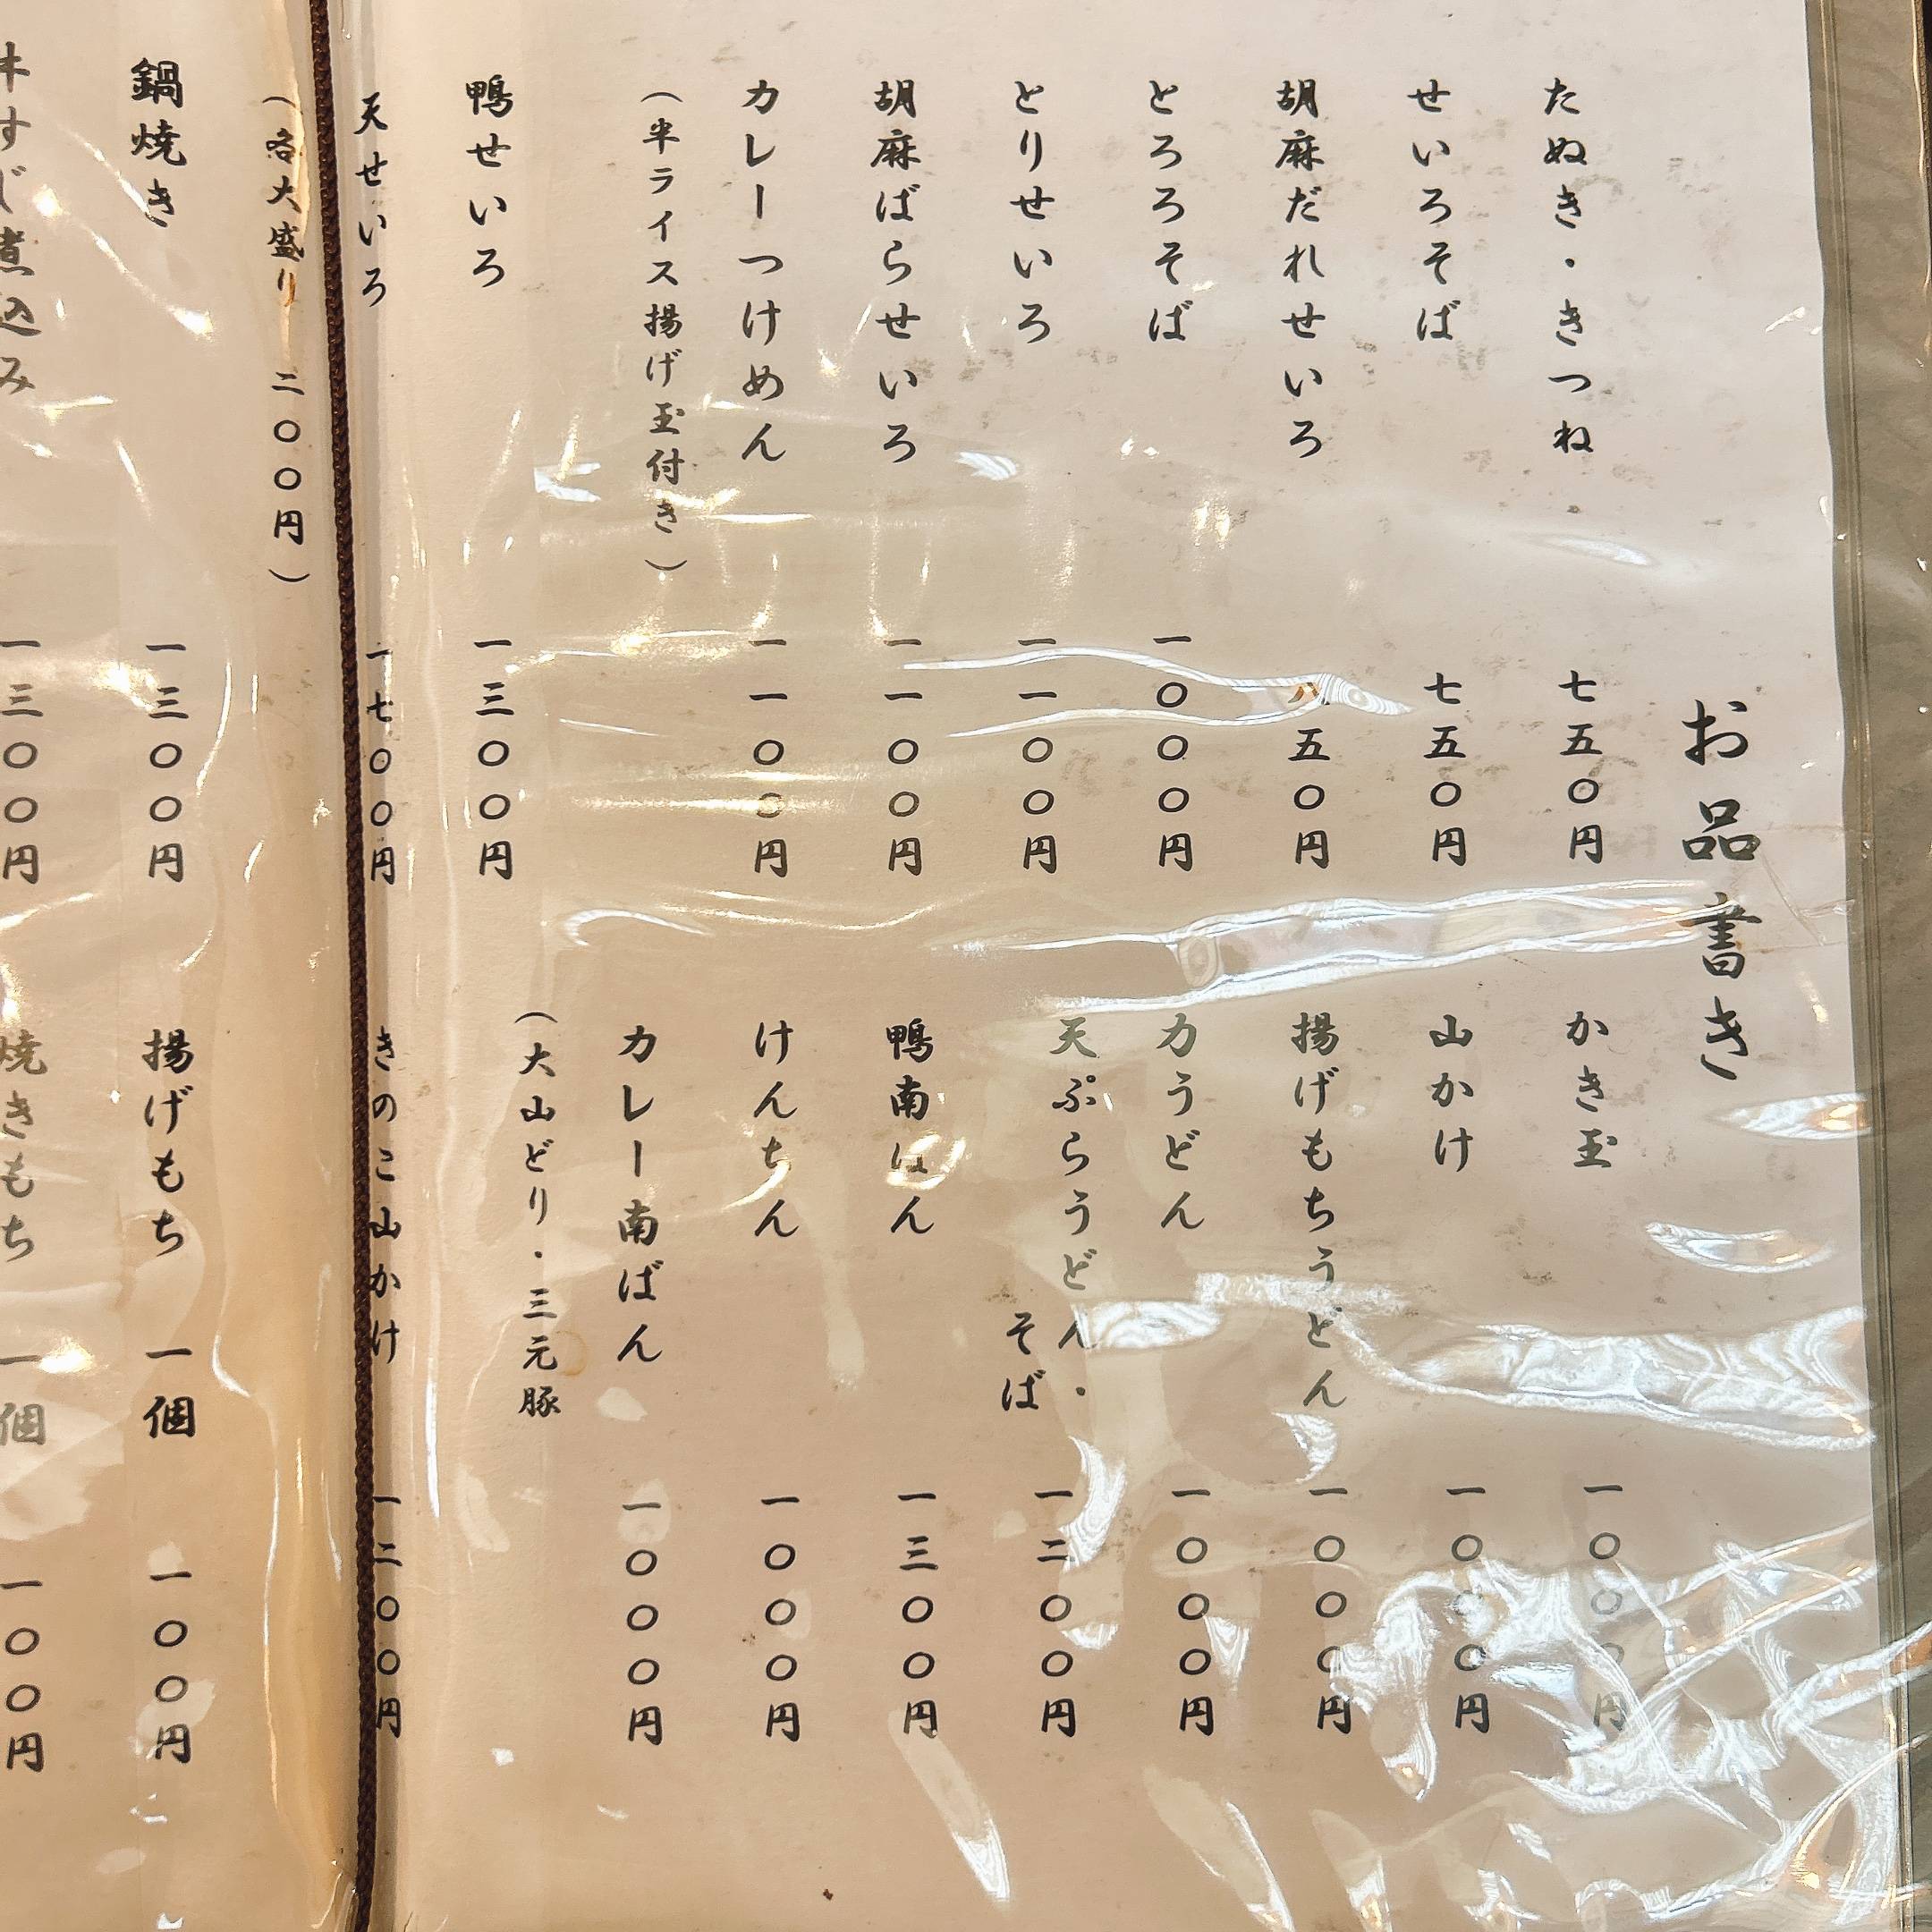 お品書き
たぬき・きつね 七五〇円
せいろそば 七五〇円
胡麻だれせいろ 八五〇円
とろろそば 一〇〇〇円
とりせいろ 一一〇〇円
胡麻ばらせいろ 一一〇〇円
カレーつけめん 一一〇〇円
（半ライス揚げ玉付き）
鴨せいろ 一三〇〇円
天せいろ 一七〇〇円
（各大盛り 二〇〇円）
かき玉 一〇〇〇円
山かけ 一〇〇〇円
揚げもちうどん 一〇〇〇円
力うどん 一〇〇〇円
天ぷらうどん・
そば 一二〇〇円
鴨南ばん 一三〇〇円
けんちん 一〇〇〇円
カレー南ばん 一〇〇〇円
（大山どり・三元豚
きのこ山かけ 一二〇〇円
鍋焼き 一三〇〇円
牛すじ煮込み 一三〇〇円
揚げもち 一個 一〇〇円
焼きもち 一個 一〇〇円